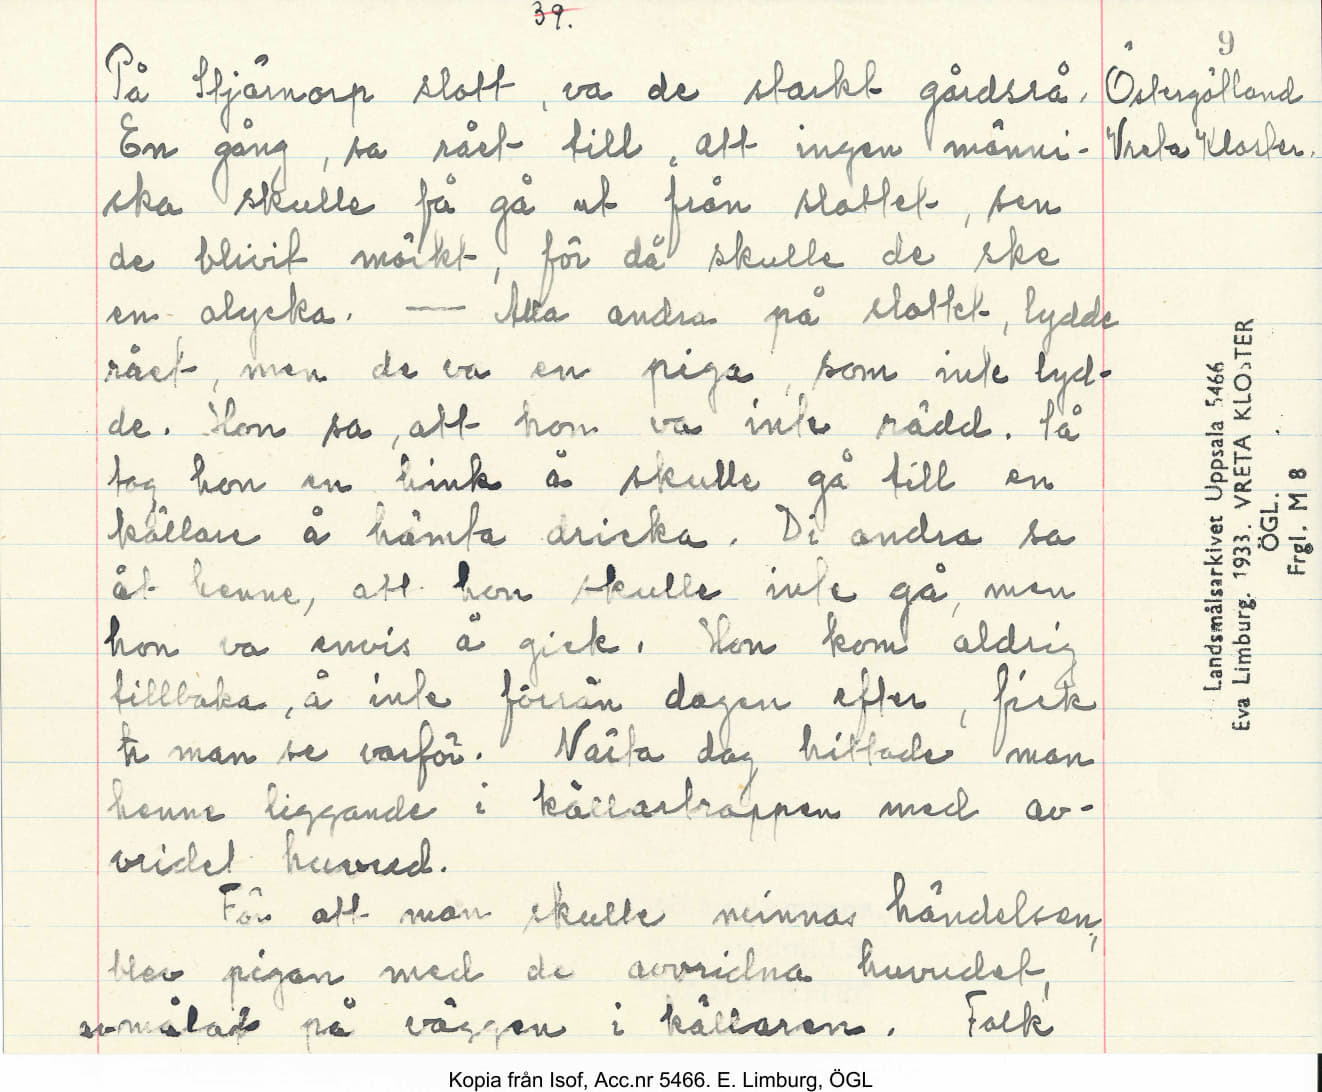 39.
9
På Stjärnorp slott, va de starkt gårdsrå.
Östergötland
En gång, sa rået till, att ingen männi-
Vreta Kloster.
ska skulle få gå ut från slottet, sen
de blivit mörkt, för då skulle de ske
en olycka. — Alla andra på slottet, lydde
rået, men de va en piga, som inte lyd-
de. Hon sa, att hon va inte rädd. Så
tog hon en hink å skulle gå till en
källare å hämta dricka. Di andra sa
åt henne, att hon skulle inte gå, men
hon va envis å gick. Hon kom aldrig
tillbaka, å inte förrän dagen efter, fick
man se varför. Nästa dag hittade man
henne liggande i källartrappen med av-
vridet huvred.
För att man skulle minnas händelsen,
blev pigan med de avvridna huvudet,
avmålad på väggen i källaren. Folk
Landsmålsarkivet Uppsala 5466
Eva Limburg. 1933. VRETA KLOSTER
ÖGL.
Frgl. M 8
Kopia från Isof, Acc.nr 5466. E. Limburg, ÖGL